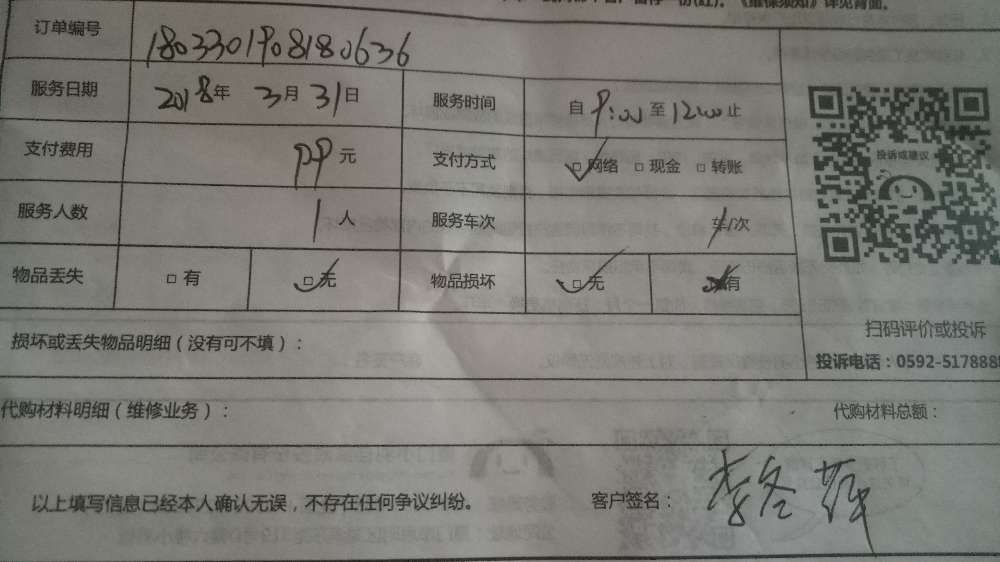 《维保须知》详见背面。
订单编号 180330190818063​6
服务日期 2018年 3月 31日 服务时间 自 9:00 至 12:00 止
支付费用 99 元 支付方式 ☑网络 □现金 □转账
投诉或建议
服务人数 1 人 服务车次 车/次
物品丢失 □有 ☑无 物品损坏 ☑无 有
扫码评价或投诉
损坏或丢失物品明细（没有可不填）：
投诉电话：0592-5178888
代购材料明细（维修业务）： 代购材料总额：
以上填写信息已经本人确认无误，不存在任何争议纠纷。 客户签名：李冬萍